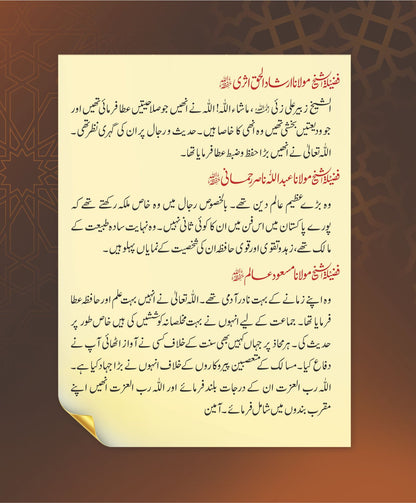 فضیلۃ الشیخ مولانا ارشاد الحق اثری حفظہ اللہ
الشیخ زبیر علی زئی رحمہ اللہ، ماشاء اللہ! اللہ نے انھیں جو صلاحیتیں عطا فرمائی تھیں اور
جو ودیعتیں بخشی تھیں وہ انھی کا خاصا ہیں۔ حدیث و رجال پر ان کی گہری نظر تھی۔
اللہ تعالیٰ نے انھیں بڑا حفظ و ضبط عطا فرمایا تھا۔
فضیلۃ الشیخ مولانا عبداللہ ناصر رحمانی حفظہ اللہ
وہ بڑے عظیم عالم دین تھے۔ بالخصوص رجال میں وہ خاص ملکہ رکھتے تھے کہ
پورے پاکستان میں اس فن میں ان کا کوئی ثانی نہیں۔ وہ نہایت سادہ طبیعت کے
مالک تھے، زہد و تقویٰ اور قوی حافظہ ان کی شخصیت کے نمایاں پہلو ہیں۔
فضیلۃ الشیخ مولانا مسعود عالم حفظہ اللہ
وہ اپنے زمانے کے بہت نادر آدمی تھے۔ اللہ تعالیٰ نے انہیں بہت علم اور حافظہ عطا
فرمایا تھا۔ جماعت کے لیے انہوں نے بہت مخلصانہ کوششیں کی ہیں خاص طور پر
حدیث کی۔ ہر محاذ پر جہاں کہیں بھی سنت کے خلاف کسی نے آواز اٹھائی آپ نے
دفاع کیا۔ مسالک کے متعصبین پیروکاروں کے خلاف انہوں نے بڑا جہاد کیا ہے۔
اللہ رب العزت ان کے درجات بلند فرمائے اور اللہ رب العزت انھیں اپنے
مقرب بندوں میں شامل فرمائے۔ آمین